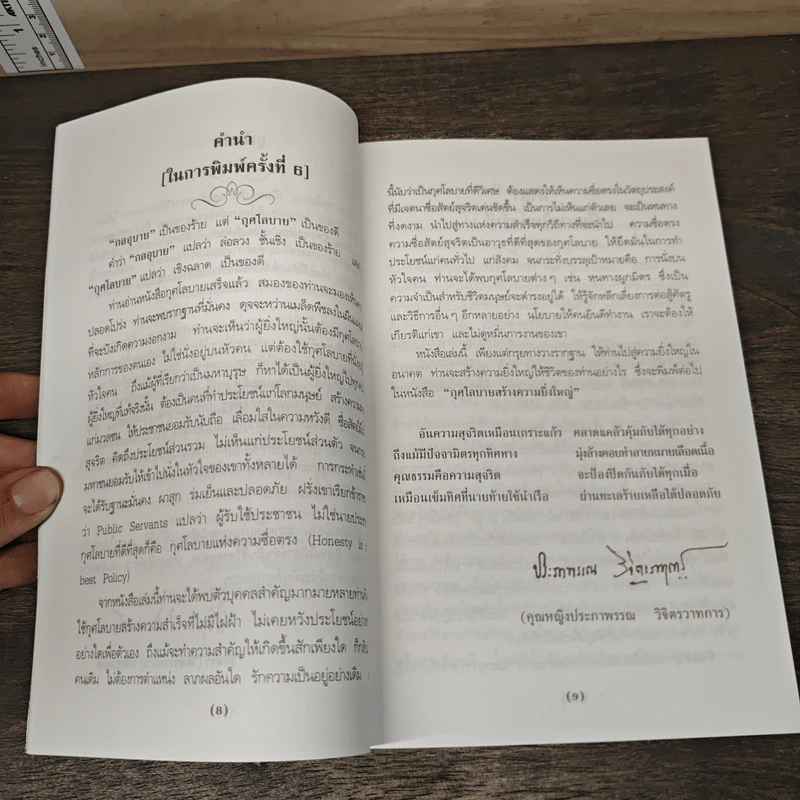 คำนำ
[ในการพิมพ์ครั้งที่ 6]
“กลอุบาย” เป็นของร้าย แต่ “กุศโลบาย” เป็นของดี
คำว่า “กลอุบาย” แปลว่า ล่อลวง ชั้นเชิง เป็นของร้าย
“กุศโลบาย” แปลว่า เชิงฉลาด เป็นของดี
ท่านอ่านหนังสือกุศโลบายเสร็จแล้ว สมองของท่านจะมองเห็น
ปลอดโปร่ง ท่านจะพบรากฐานที่มั่นคง ดุจจะหว่านเมล็ดพืชลงในผืน
ที่จะบังเกิดความงอกงาม ท่านจะเห็นว่าผู้ยิ่งใหญ่นั้นต้องมีกุศโล
หลักการของตนเอง ไม่ใช่นั่งอยู่บนหัวคน แต่ต้องใช้กุศโลบายที่นั่ง
หัวใจคน ถึงแม้ผู้ที่เรียกว่าเป็นมหาบุรุษ ก็หาได้เป็นผู้ยิ่งใหญ่ไป
ผู้ยิ่งใหญ่ที่แท้จริงนั้น ต้องเป็นคนที่ทำประโยชน์แก่โลกมนุษย์ สร้าง
แก่มวลชน ให้ประชาชนยอมรับนับถือ เลื่อมใสในความหวังดี ซื่อสัตย์
สุจริต คิดถึงประโยชน์ส่วนรวม ไม่เห็นแก่ประโยชน์ส่วนตัว จน
มหาชนยอมรับให้เข้าไปนั่งในหัวใจของเขาทั้งหลายได้ การกระทำเช่น
จะได้รับฐานะมั่นคง ผาสุก ร่มเย็นและปลอดภัย ฝรั่งเขาเรียก
ว่า Public Servants แปลว่า ผู้รับใช้ประชาชน ไม่ใช่นายประชา
กุศโลบายที่ดีที่สุดก็คือ กุศโลบายแห่งความซื่อตรง (Honesty is
best Policy)
จากหนังสือเล่มนี้ท่านจะได้พบตัวบุคคลสำคัญมากมายหลายท่าน
ใช้กุศโลบายสร้างความสำเร็จที่ไม่มีไฝฝ้า ไม่เคยหวังประโยชน์
อย่างใดเพื่อตัวเอง ถึงแม้จะทำความสำคัญให้เกิดขึ้นสักเพียงใด ก็
คนเดิม ไม่ต้องการตำแหน่ง ลาภผลอันใด รักความเป็นอยู่อย่างเดิม
(8)
นี้นับว่าเป็นกุศโลบายที่ดีวิเศษ ต้องแสดงให้เห็นความซื่อตรงในวัตถุประสงค์
ที่มีเจตนาซื่อสัตย์สุจริตเด่นชัดขึ้น เป็นการไม่เห็นแก่ตัวเลย จะเป็นหนทาง
ที่งดงาม นำไปสู่ทางแห่งความสำเร็จทุกวิถีทางที่จะนำไป ความซื่อตรง
ความซื่อสัตย์สุจริตเป็นอาวุธที่ดีที่สุดของกุศโลบาย ให้ยึดมั่นในการทำ
ประโยชน์แก่คนทั่วไป แก่สังคม จนกระทั่งบรรลุเป้าหมายคือ การนั่งบน
หัวใจคน ท่านจะได้พบกุศโลบายต่างๆ เช่น หนทางผูกมิตร ซึ่งเป็น
ความจำเป็นสำหรับชีวิตมนุษย์จะดำรงอยู่ได้ ให้รู้จักหลีกเลี่ยงการต่อสู้ศัตรู
และวิธีการอื่นๆ อีกหลายอย่าง นโยบายให้คนยินดีทำงาน เราจะต้องให้
เกียรติแก่เขา และไม่ดูหมิ่นการงานของเขา
หนังสือเล่มนี้ เพียงแต่กรุยทางวางรากฐาน ให้ท่านไปสู่ความยิ่งใหญ่ใน
อนาคต ท่านจะสร้างความยิ่งใหญ่ให้ชีวิตของท่านอย่างไร ซึ่งจะพิมพ์ต่อไป
ในหนังสือ “กุศโลบายสร้างความยิ่งใหญ่”
อันความสุจริตเหมือนเกราะแก้ว คลาดแคล้วคุ้มภัยได้ทุกอย่าง
ถึงแม้มีปัจจามิตรทุกทิศทาง มุ่งล้างคอยทำลายหมายเลือดเนื้อ
คุณธรรมคือความสุจริต จะป้องปิดกันภัยได้ทุกเมื่อ
เหมือนเข็มทิศที่นายท้ายใช้นำเรือ ผ่านทะเลร้ายเหลือได้ปลอดภัย
ประภาพรรณ วิจิตรวาทการ
(คุณหญิงประภาพรรณ วิจิตรวาทการ)
(9)